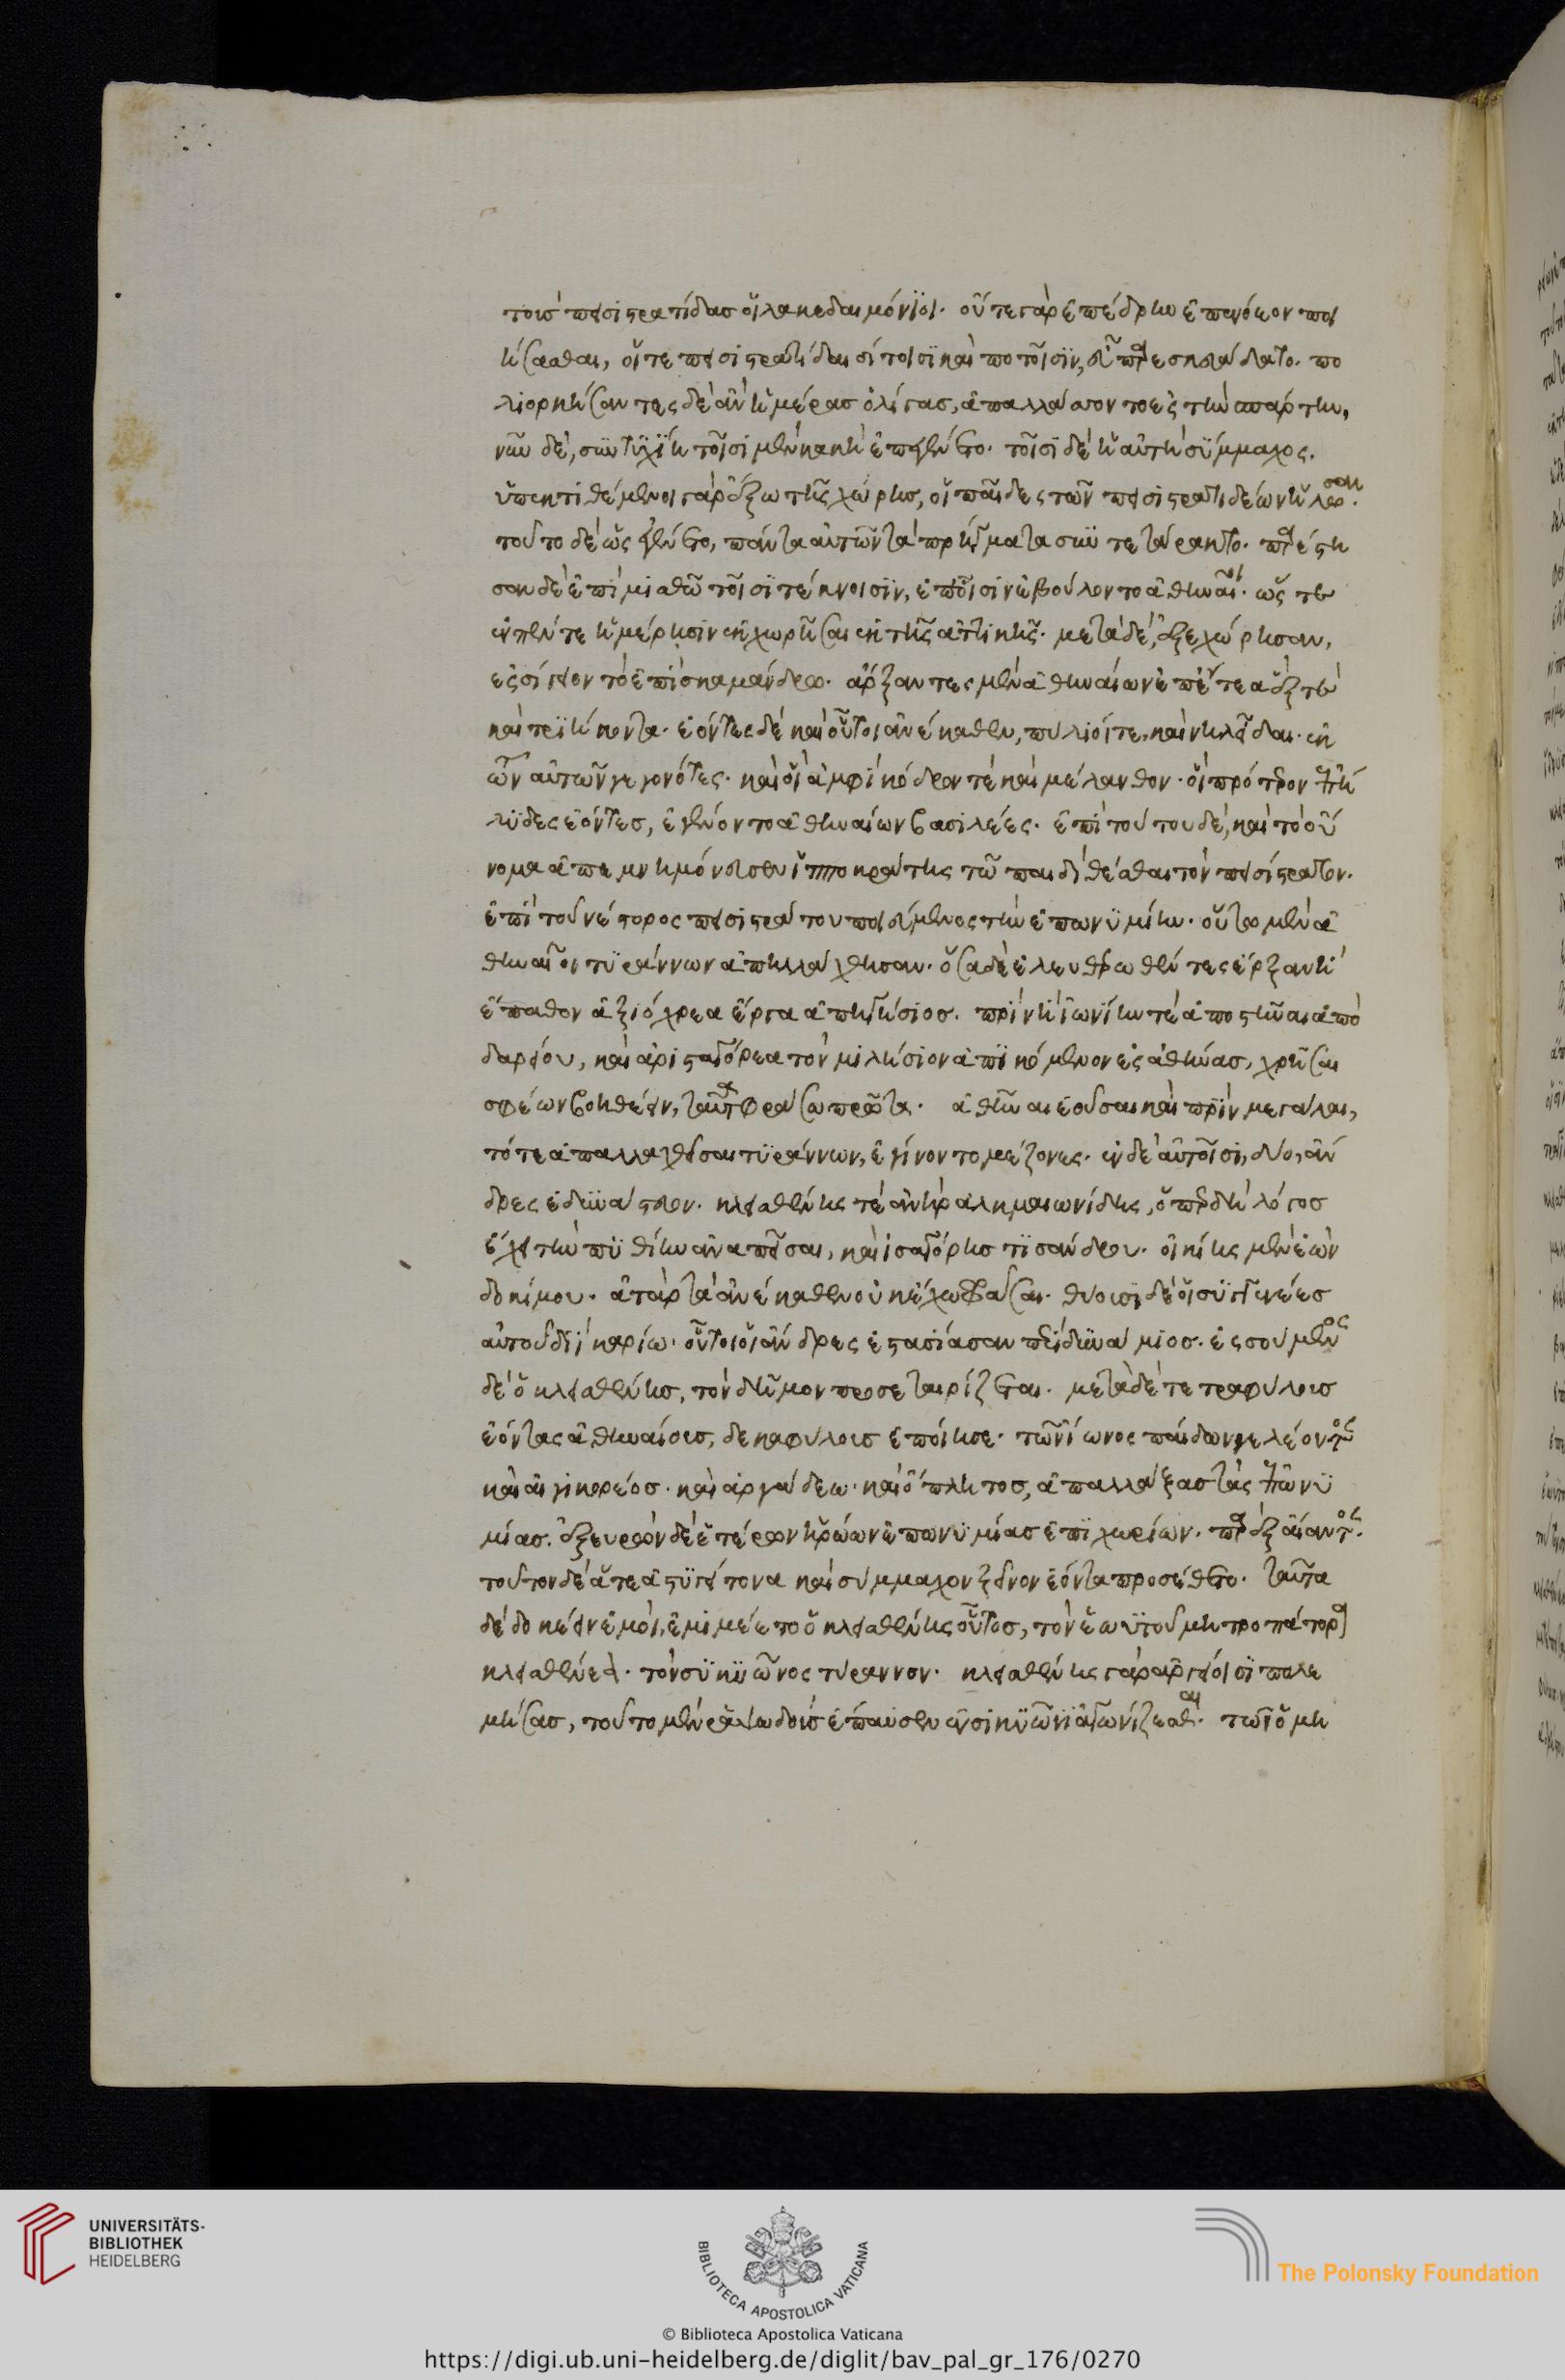 τοὺς πεισιστρατίδας οἱ λακεδαιμόνιοι. οὔτε γὰρ ἐπέδρην ἐπενόεον ποι
ήσασθαι, οἵ τε πεισιστρατίδαι σίτοισι καὶ ποτοῖσιν, εὖ παρεσκευάδατο. πο
λιορκήσαντες δὲ ἂν ἡμέρας ὀλίγας, ἀπαλλάσσοντο ἐς τὴν σπάρτην,
νῦν δὲ, συντυχίη τοῖσι μὲν κακὴ ἐπεγένετο. τοῖσι δὲ ἡ αὐτὴ σύμμαχος.
ὑπεκτιθέμενοι γὰρ ἔξω τῆς χώρης, οἱ παῖδες τῶν πεισιστρατιδέων ἥλωσαν.
τοῦτο δὲ ὡς ἐγένετο, πάντα αὐτῶν τὰ πρήγματα συνετετάρακτο. παρέστη
σαν δὲ ἐπὶ μισθῶ τοῖσι τέκνοισιν, ἐπ' οἷσιν ἐβούλοντο ἀθηναῖοι. ὥστε
ἐν πέντε ἡμέρησιν ἐκχωρῆσαι ἐκ τῆς ἀττικῆς. μετὰ δὲ, ἐξεχώρησαν,
ἐς σίγειον τὸ ἐπὶ σκαμάνδρω. ἄρξαντες μὲν ἀθηναίων ἐπ' ἔτεα ἓξ τε
καὶ τριήκοντα. ἐόντες δὲ καὶ οὗτοι ἀνέκαθεν, πυλιοί τε. καὶ νηλεῖδαι. ἐκ
τῶν αὐτῶν γεγονότες. καὶ οἱ ἀμφὶ κόδρον τὲ καὶ μέλανθον. οἳ πρότερον ἐπή
λυδες ἐόντες, ἐγένοντο ἀθηναίων βασιλέες. ἐπὶ τούτου δὲ, καὶ τὸ οὔ
νομα ἀπεμνημόνευσεν ἱπποκράτης τῶ παιδὶ θέσθαι τὸν πεισίστρατον.
ἐπὶ τοῦ νέστορος πεισιστράτου ποιεύμενος τὴν ἐπωνυμίην. οὕτω μὲν ἀ
θηναῖοι τυράννων ἀπηλλάχθησαν. ὅσα δὲ ἐλευθερωθέντες ἔρξαν ἢ
ἔπαθον ἀξιόχρεα ἔργα ἀπηγήσιος. πρὶν ἢ ἰωνίην τὲ ἀποστῆναι ἀπὸ
δαρείου, καὶ ἀρισταγόρεα τὸν μιλήσιον ἀπικόμενον ἐς ἀθήνας, χρηῖσαι
σφέων βοηθέειν, ταῦτα φράσω πρῶτα. ἀθῆναι ἐοῦσαι καὶ πρὶν μεγάλαι,
τότε ἀπαλλαχθεῖσαι τυράννων, ἐγίνοντο μέζονες. ἐν δὲ αὐτοῖσι, δύο, ἄν
δρες ἐδυνάστευον. κλεισθένης τὲ ἀνὴρ ἀλκμαιωνίδης, ὅπερ δὴ λόγος
ἔχει τὴν πυθίην ἀναπεῖσαι, καὶ ἰσαγόρης τισάνδρου. οἰκίης μὲν ἐὼν
δοκίμου. ἀτὰρ τὰ ἀνέκαθεν οὐκ ἔχω φράσαι. θύουσι δὲ οἱ συγγενέες
αὐτοῦ διὶ καρίω. οὗτοι οἱ ἄνδρες ἐστασίασαν περὶ δυνάμιος. ἑσσούμενος
δὲ ὁ κλεισθένης, τὸν δῆμον προσεταιρίζεται. μετὰ δὲ τετραφύλους
ἐόντας ἀθηναίους, δεκαφύλους ἐποίησε. τῶν ἴωνος παίδων γελέοντος
καὶ αἰγικορέος. καὶ ἀργάδεω. καὶ ὅπλητος, ἀπαλλάξας τὰς ἐπωνυ
μίας. ἐξευρὼν δὲ ἑτέρων ἡρώων ἐπωνυμίας ἐπιχωρίων. πάρεξ αἴαντος.
τοῦτον δὲ ἅτε ἀστυγείτονα καὶ σύμμαχον ξεῖνον ἐόντα προσέθετο. ταῦτα
δὲ δοκέειν ἐμοὶ, ἐμιμέετο ὁ κλεισθένης οὗτος, τὸν ἑωυτοῦ μητροπάτορα
κλεισθένεα. τὸν σικυῶνος τύραννον. κλεισθένης γὰρ ἀργείοισι πολε
μήσας, τοῦτο μὲν ῥαψωδοὺς ἔπαυσεν ἐν σικυῶνι ἀγωνίζεσθαι. τῶν ὁμη
UNIVERSITÄTS-
BIBLIOTHEK
HEIDELBERG
BIBLIOTECA APOSTOLICA VATICANA
The Polonsky Foundation
© Biblioteca Apostolica Vaticana
https://digi.ub.uni-heidelberg.de/diglit/bav_pal_gr_176/0270